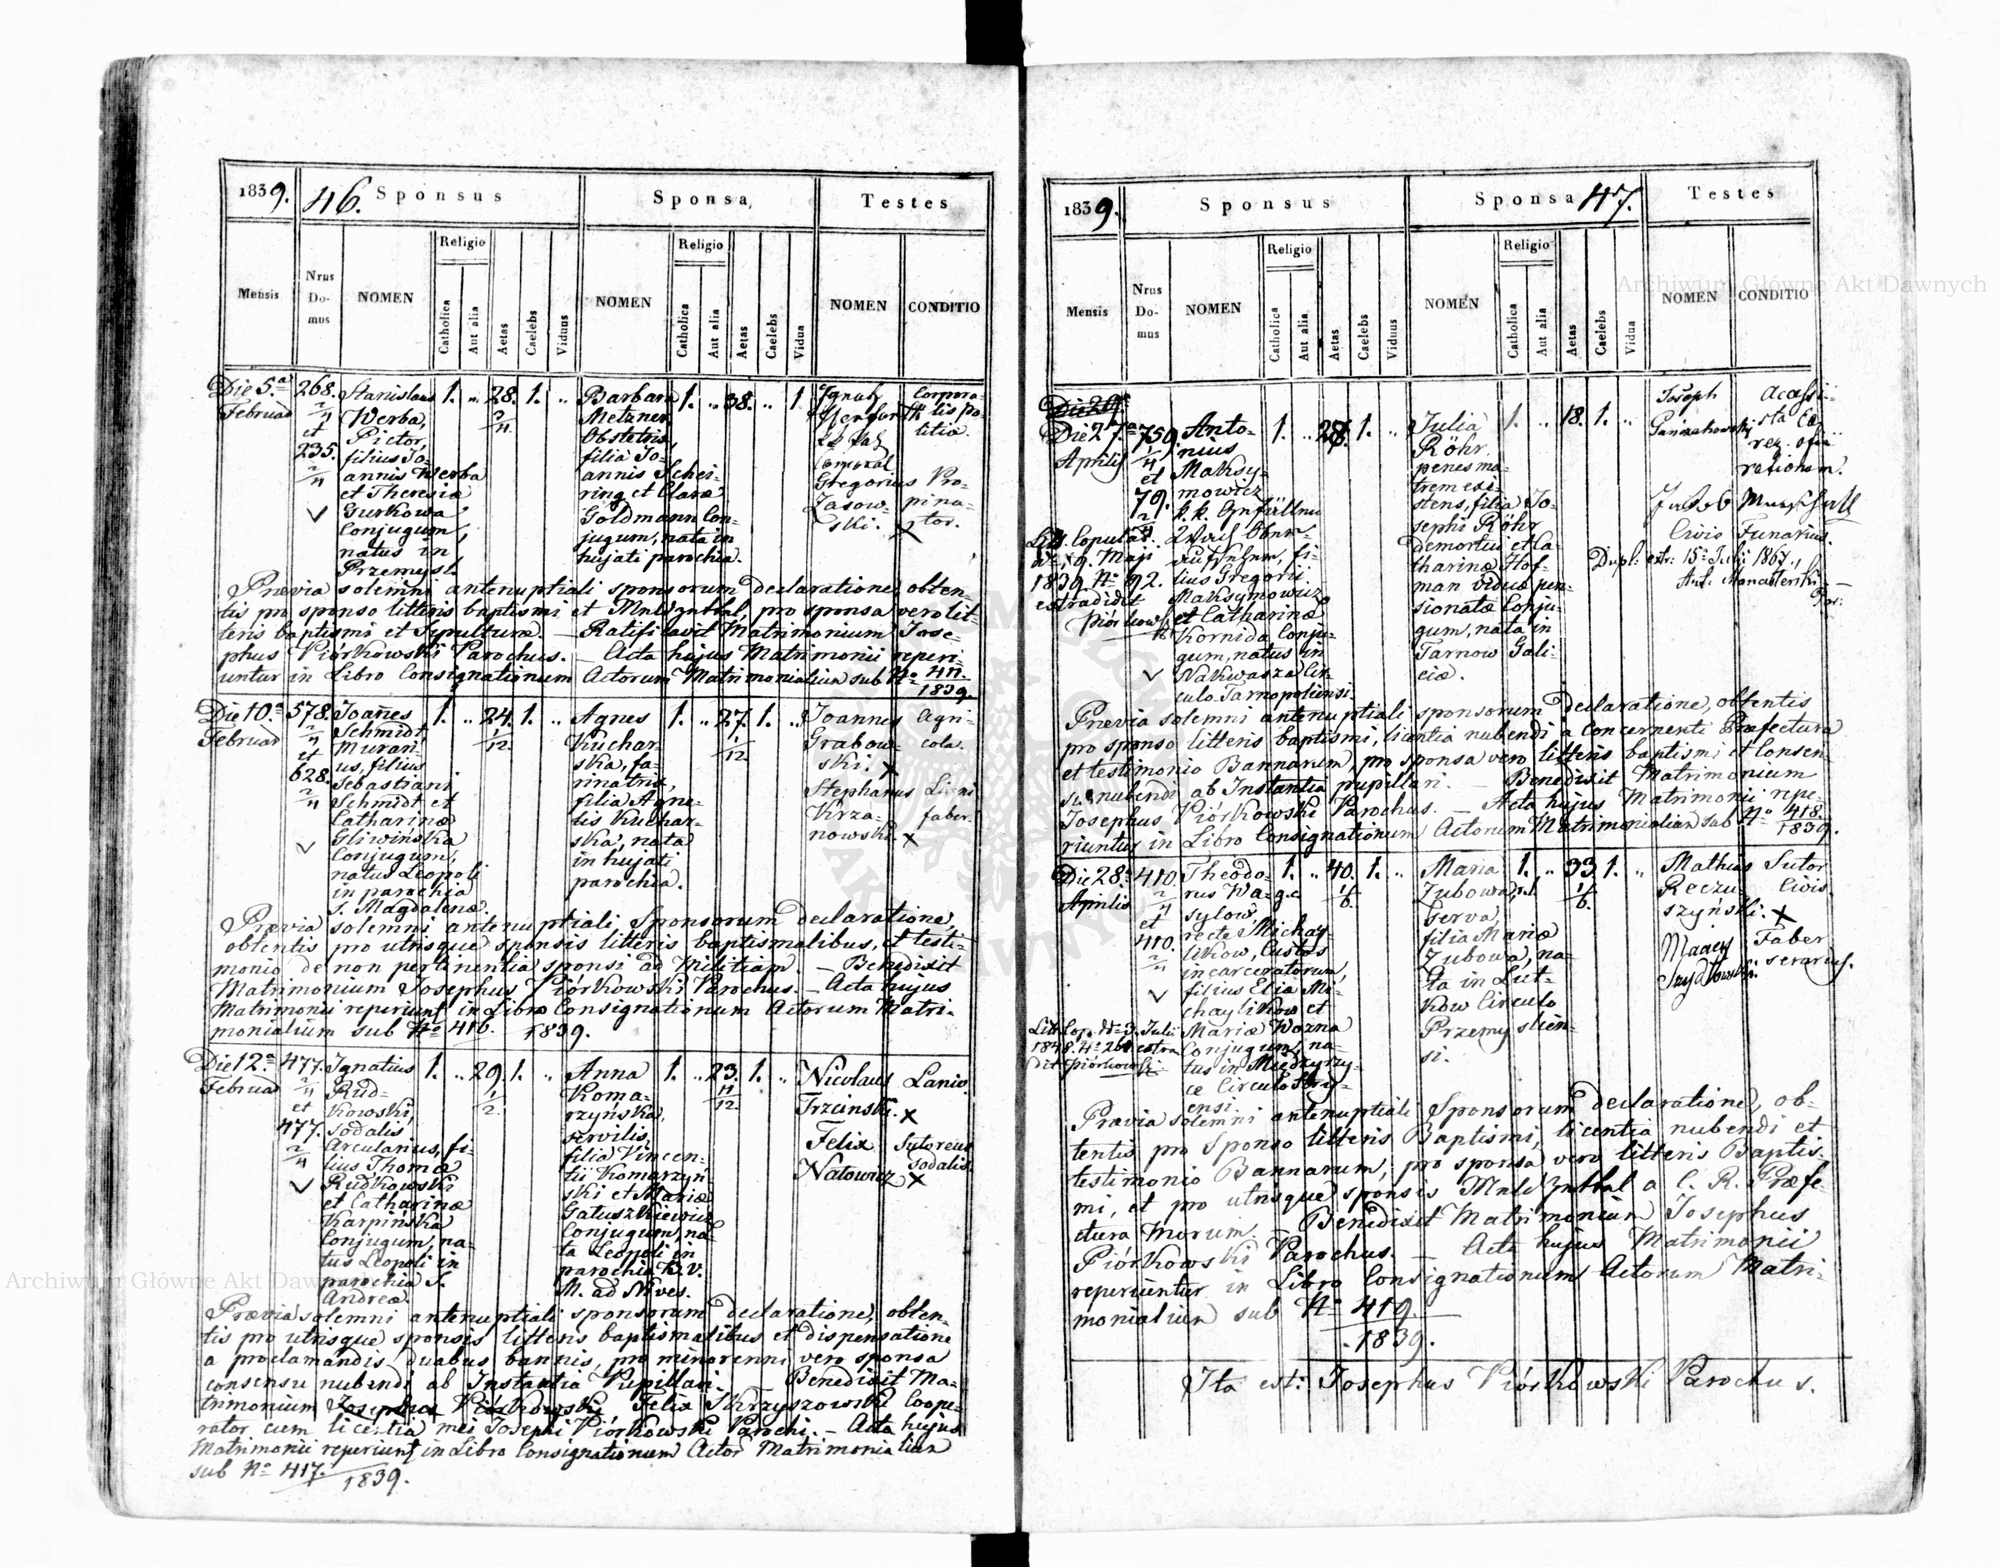 1839. 46. Sponsus Sponsa Testes
Mensis Nrus Domus NOMEN Religio Catholica Aut alia Aetas Caelebs Viduus NOMEN Religio Catholica Aut alia Aetas Caelebs Vidua NOMEN CONDITIO
Die 5a
Februar
268.
2/4
et
235.
2/4
Stanislaus
Werba,
Pictor,
filius Jo-
annis Werba
et Theresiæ
Gurkowa
Conjugum,
natus in
Przemysl.
1. „ 28. 1. „
Barbara
Metzner
Obstetrix,
filia Jo-
annis Schei-
ring et Claræ
Goldmann Con-
jugum, nata in
hujati parochia.
1. „ 38. „ 1.
Ignatz
Corpora-
lis po-
litiæ.
Gregorius
Zasow-
ski.
Pro-
pina-
tor.
Prævia solemni antenuptiali sponsorum declaratione, obten-
tis pro sponso litteris baptismi et pro sponsa vero lit-
teris baptismi et Sepulturæ. — Ratificavit Matrimonium Jose-
phus Piórkowski Parochus. — Acta hujus Matrimonii reperi-
untur in Libro Consignationum Actorum Matrimonialium sub No
1839.
Die 10a
Februar
578.
2/4
et
628.
2/4
Joannes
Schmidt,
Murari-
us, filius
Sebastiani
Schmidt et
Catharinæ
Gliwińska
Conjugum,
natus Leopoli
in parochia
S. Magdalenæ.
1. „ 24. 1. „
1/12.
Agnes
Kuchar-
ska, fa-
rinatrix,
filia Agne-
tis Kuchar-
ska, nata
in hujati
parochia.
1. „ 27. 1. „
1/12.
Joannes
Grabow-
ski. x
Agri-
cola.
Stephanus
Krza-
nowski. x
Ligni
faber.
Prævia solemni antenuptiali Sponsorum declaratione,
obtentis pro utrisque sponsis litteris baptismalibus, et testi-
monio de non pertinentia sponsi ad Militiam. — Benedixit
Matrimonium Josephus Piórkowski Parochus. — Acta hujus
Matrimonii reperiunt in Libro Consignationum Actorum Matri-
monialium sub No 416. 1839.
Die 12a
Februar
477.
2/4
et
477.
2/4
Ignatius
Rud-
kowski,
sodalis
Arcularius, fi-
lius Thomæ
Rudkowski
et Catharinæ
Karpińska
Conjugum, na-
tus Leopoli in
parochia S.
Andreæ.
1. „ 29. 1. „
1/2.
Anna
Koma-
rzyńska,
servilis,
filia Vincen-
tii Komarzyń-
ski et Mariæ
Gatuszkiewicz
Conjugum, na-
ta Leopoli in
parochia B. V.
M. ad Nives.
1. „ 23. 1. „
11/12.
Nicolaus
Trzcinski. x
Lanio.
Felix
Natowicz x
Sutoreus
sodalis.
Prævia solemni antenuptiali sponsorum declaratione, obten-
tis pro utrisque sponsis litteris baptismalibus et dispensatione
a proclamandis duabus bannis, pro minorenni vero sponsa
consensu nubendi ab Instantia Pupillari. Benedixit Ma-
trimonium Josephus Piórkowski Felix Skrzyszowski Coope-
rator cum licentia mei Josephi Piórkowski Parochi. — Acta hujus
Matrimonii reperiunt in Libro Consignationum Actor Matrimonialium
sub No 417. 1839.
1839. Sponsus Sponsa 47. Testes
Mensis Nrus Domus NOMEN Religio Catholica Aut alia Aetas Caelebs Viduus NOMEN Religio Catholica Aut alia Aetas Caelebs Vidua NOMEN CONDITIO
Die 27a
Aprilis
750.
2/4
et
79.
2/4
Anto-
nius
Maksy-
mowicz
k. k.
fi-
lius Gregorii
Maksymowicz
et Catharinæ
Kornida Conju-
gum, natus in
Nakwasza Cir-
culo Tarnopoliensi.
1. „ 28. 1. „
Lit. Copulat.
9. Maji
1839 No 92.
extradidit
Piórkowski
Julia
Röhr,
penes ma-
trem exi-
stens, filia Jo-
sephi Röhr
demortui et Ca-
tharinæ Hof-
man viduæ pen-
sionatæ Conju-
gum, nata in
Tarnow Gali-
ciæ.
1. „ 18. 1. „
Joseph
Jacob
Civis Funarius.
Dupl. extr. 15 Juli 1867.
Prævia solemni antenuptiali sponsorum declaratione, obtentis
pro sponso litteris baptismi, licentia nubendi a concernenti Præfectura
et testimonio Bannarum, pro sponsa vero litteris baptismi et consen-
su nubendi ab Instantia pupillari. — Benedixit Matrimonium
Josephus Piórkowski Parochus. — Acta hujus Matrimonii repe-
riuntur in Libro Consignationum Actorum Matrimonialium sub No 418.
1839.
Die 28a
Aprilis
410.
2/4
et
410.
2/4
Theodo-
rus Wa-
sylow,
recte Michay-
likow, Custos
incarceratorum,
filius Eliæ Mi-
chaylikow et
Mariæ Wozna
Conjugum, na-
tus in Międzyrzy-
ce Circulo Stry-
ensi.
1. g.c. „ 40. 1. „
1/6.
Lit. Cop. 3. Juli
1848. No 261 extra
dit Piórkowski
Maria
Zubowa,
serva,
filia Mariæ
Zubowa, na-
ta in Lut-
kow Circulo
Przemyslien-
si.
1. r.l. „ 33. 1. „
1/6.
Mathias
Reczu-
szyński. x
Sutor
Civis.
Maciey
Szydłowski.
Faber
serarius.
Prævia solemni antenuptiali Sponsorum declaratione, ob-
tentis pro Sponso litteris Baptismi, licentia nubendi et
testimonio Bannarum, pro sponsa vero litteris Baptis-
mi, et pro utrisque sponsis a C. R. Præfe-
ctura Morum. — Benedixit Matrimonium Josephus
Piórkowski Parochus. — Acta hujus Matrimonii
reperiuntur in Libro Consignationum Actorum Matri-
monialium sub No 419.
1839.
Ita est: Josephus Piórkowski Parochus.
Archiwum Główne Akt Dawnych
Archiwum Główne Akt Dawnych